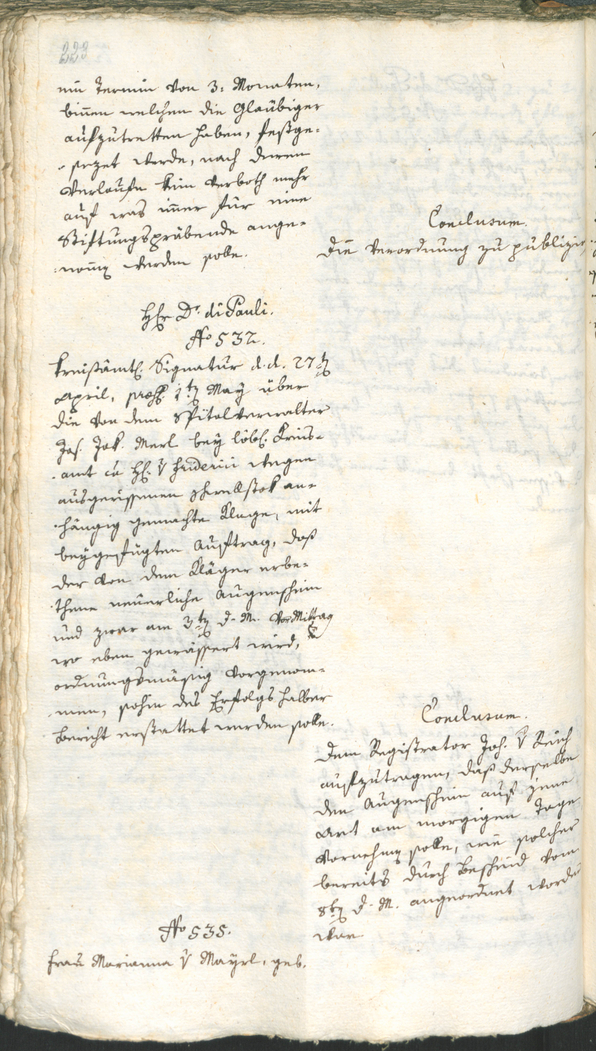 ein Termin von 3: Monaten,
binnen welchen die Glaübiger
aufzutretten haben, festge-
sezet werde, nach deren
Verlaufe kein Verboth mehr
auf was im̅er für eine
Stiftungspräbende ange-
nom̅en werden solle.
Conclusum.
Die Verordnung zu publizir
H: Dr. di Pauli.
No 532.
Kreisämtl. Signatur d. d. 27ten
April, 1ten May über
die von dem Spitalverwalter
Jos. Jak. Merl bey löbl. Kreis-
amt ca H: v wegen
ausgerissenen an-
hängig gemachte Klage, mit
beygefügten Auftrag, daß
der von dem Kläger erbe-
thene neuerliche Augenschein
und zwar am 3ten d. M. VorMittag
wo eben gewässert wird,
ordnungsmäsig vorgenom-
men, sohin des Erfolgs halber
Bericht erstattet werden solle.
Conclusum.
Dem Registrator Joh. v
aufzutragen, daß derselbe
den Augenschein auf jene
Art am morgigen Tage
vornehmen solle, wie solcher
bereits durch Bescheid vom
8ten d. M. angeordnet worden
war.
No 535.
Frau Marianna v Mayrl, geb.